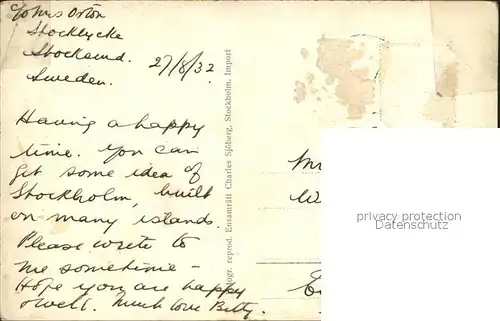 Johns Orton
Stocklycke
Stocksund.
Sweden.
27/8/32
Having a happy
time. You can
get some idea of
Stockholm, built
on many islands.
Please write to
me sometime –
Hope you are happy
& well. Much love Betty.
ogr. reprod. Ensamrätt Charles Sjöberg, Stockholm. Import
privacy protection
Datenschutz